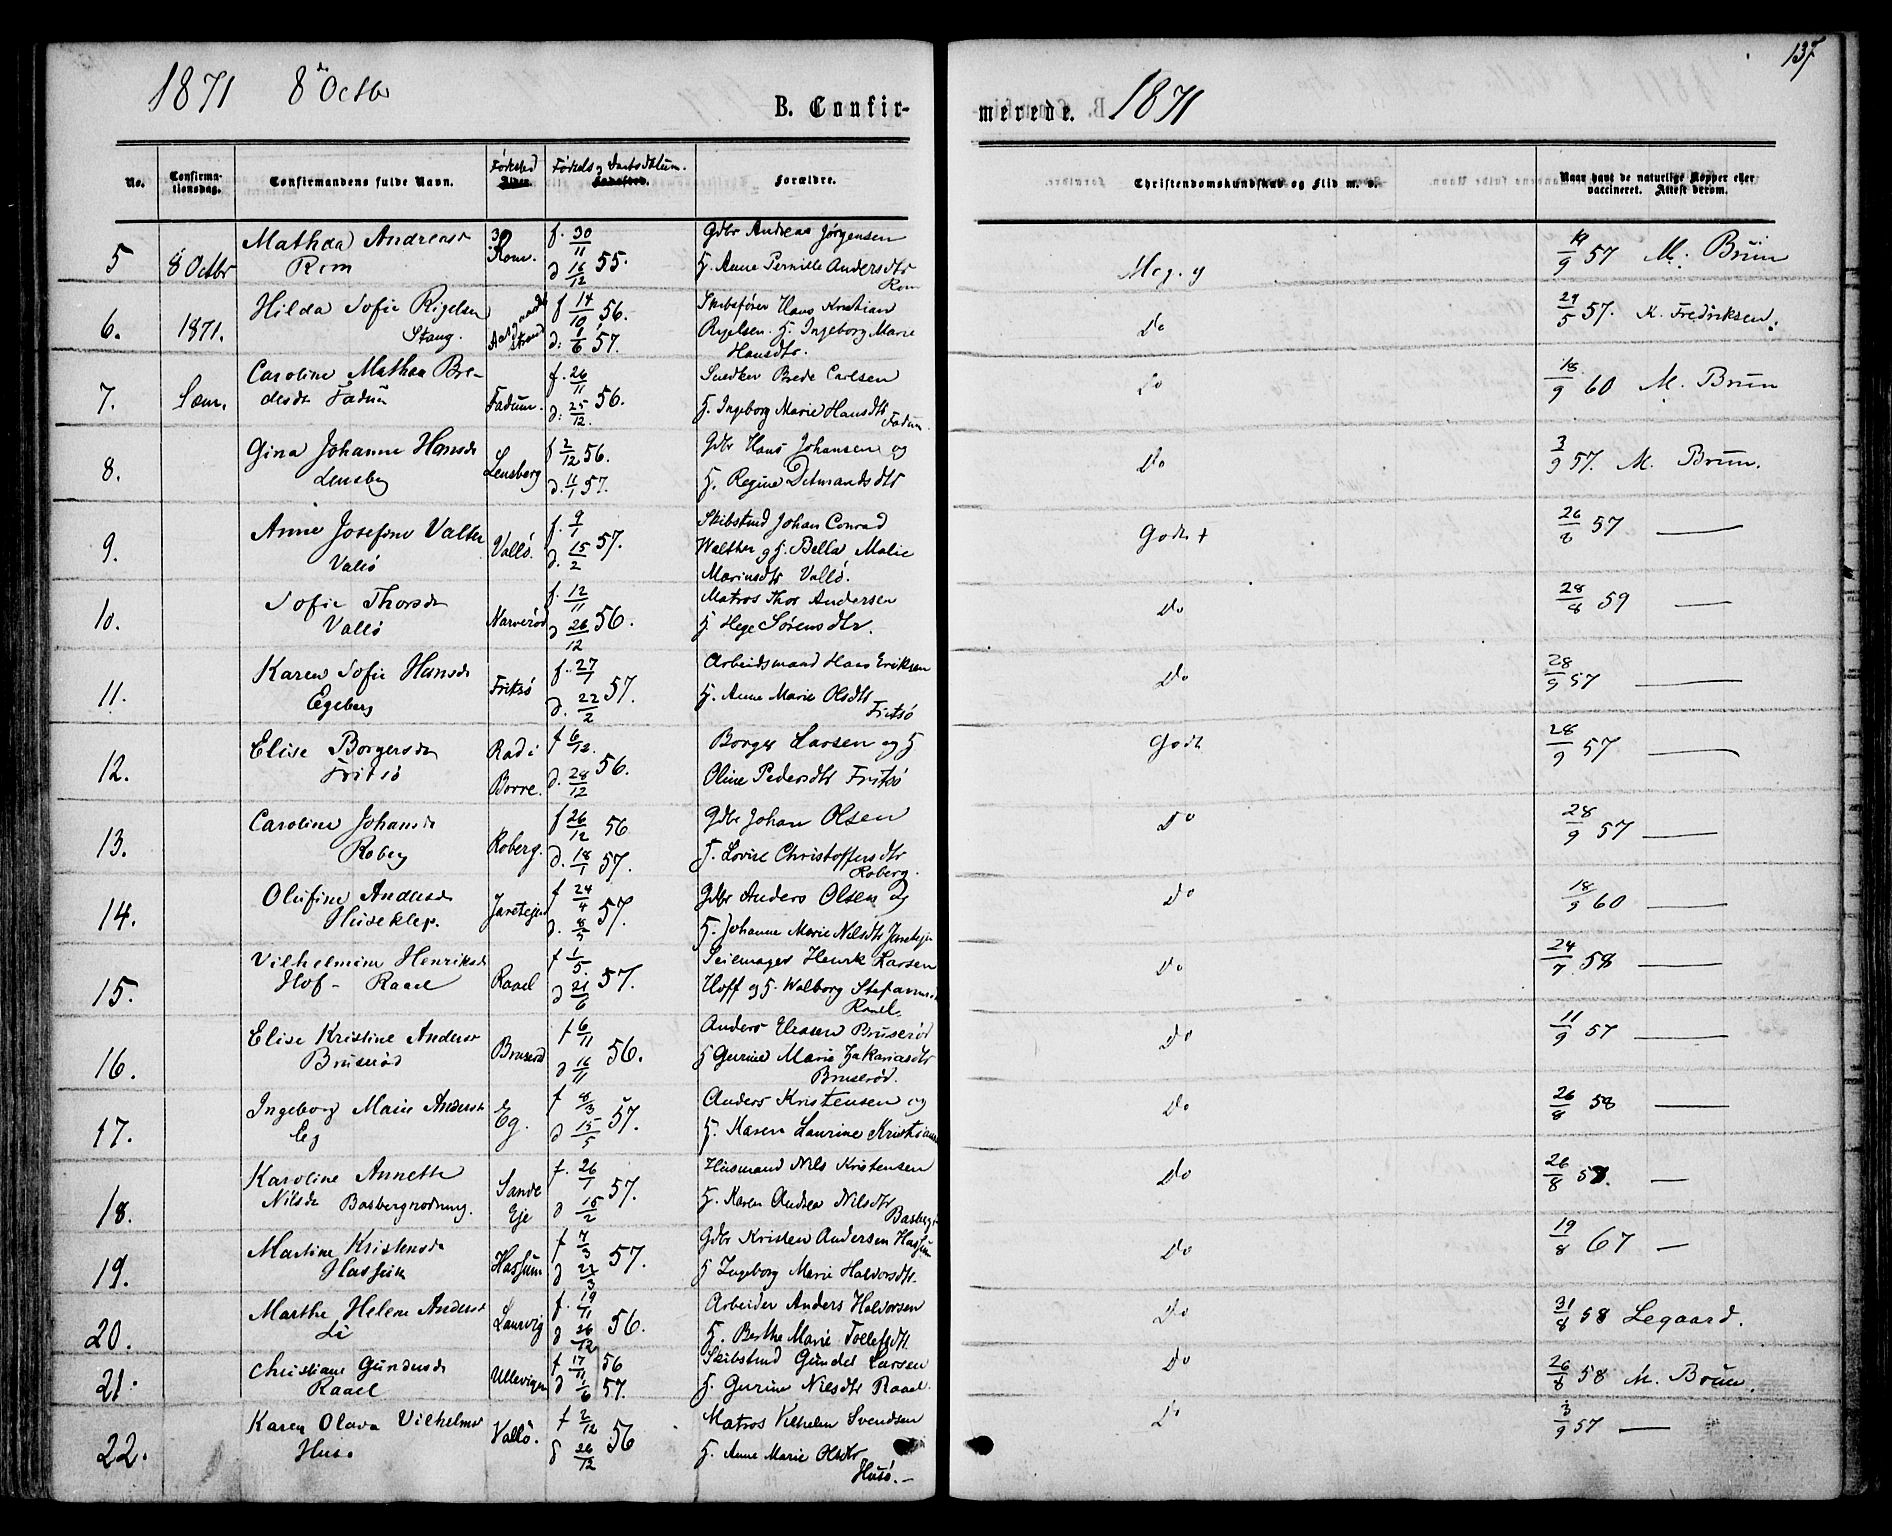 1871 8de Octbr
B. Confir-
merede. 1871
137
No.
Confirma-
tionsdag.
Confirmandens fulde Navn.
Fødested
Alder.
Fødsels og Daabsdatum.
Forældre.
Christendomskundskab og Flid m. v.
Naar havt de naturlige Kopper eller
vaccineret. Attest derom.
5 8 Octbr Mathea Andreasd
Rom
Rom.
f. 30/11 55.
d 16/12
Gdbr Andreas Jørgensen
H. Anne Pernille Andersdtr
Rom
Meg. g
19/9 57 M. Brun
6. 1871. Hilda Sofie Rigelsen
Stang.
Aasgaard
strand
f 14/10 56.
d: 1/6 57.
Skibsfører Hans Kristian
Rigelsen. H. Ingeborg Marie
Hansdtr.
Do
29/5 57. K. Fredriksen.
7. Sem. Caroline Mathea Bre-
desdr Fadum
Fadum.
f. 26/11 56.
d: 25/12.
Snedker Brede Carlsen
H. Ingeborg Marie Hansdtr
Fadum.
Do
18/9 60 M. Brun
8. Gina Johanne Hansdr
Lensberg
Lensberg
f 2/12 56.
d. 11/1 57.
Gdbr Hans Johansen og
H. Regine Ditmandsdtr
Do
3/9 57. M. Brun.
9. Anne Josefine Valter
Vallö
Vallö.
f. 9/1 57.
d. 15/2
Skibstmd Johan Conrad
Walther og H. Bella Malie
Mariusdtr Vallö.
Godt +
26/8 57 —
10. Sofie Thorsdr
Vallö
Narverød
f. 12/11 56.
d 26/12
Matros Thor Andersen
H. Hege Sørensdtr.
Do
28/8 59 —
11. Karen Sofie Hansdr
Egeberg
Fritsö
f. 27/1 57.
d. 22/2
Arbeidsmand Hans Eriksen
H. Anne Marie Olsdtr
Fritsö
Do
28/9 57 —
12. Elise Borgersdr
Fritsö
Rad i
Borre.
f 6/12. 56.
d. 28/12
Borger Larsen og H
Oline Pedersdtr Fritsö
Godt
28/9 57 —
13. Caroline Johansdr
Roberg
Roberg.
f 26/12 56
d. 18/1 57.
Gdbr Johan Olsen
H. Lovise Christoffersdtr
Roberg.
Do
28/9 57 —
14. Olufine Andersdr
Huseklep.
Jaretejen
f 24/4 57.
d. 8/5
Gdbr Anders Olsen og
H. Johanne Marie Nilsdtr Jaretejen
Do
18/9 60 —
15. Vilhelmine Henriksdr
Hof - Raael
Raael
f 1/5. 57.
d 21/6
Seilmager Henrik Larsen
Hoff og H. Walborg
Raael.
Do
24/7 58 —
16. Elise Kristine Andersdr
Bruserød
Bruserød
f 6/11 56.
d 16/11
Anders Eliasen Bruserød
H Gurine Marie Zakariasdtr
Bruserød.
Do
11/9 57 —
17. Ingeborg Marie Andersdr
Eg
Eg.
f 8/3 57.
d 15/5
Anders Kristensen og
H. Karen Laurine
Do
26/8 58 —
18. Karoline Annette
Nilsdr Basbergrødning.
Sande
Eje
f. 26/1 57.
d 15/2
Husmand Nils Kristensen
H. Karen Andrea Nilsdtr
Basberg
Do
26/8 —
19. Martine Kristensdr
Hassum
Hassum
f 7/3 57.
d 22/3
Gdbr Kristen Andersen Hassum
H Ingeborg Marie Halvorsdtr.
Do
19/8 67 —
20. Marthe Helene Andersdr
Li
Laurvig
f. 19/11 56.
d 26/12
Arbeider Anders Halvorsen
H. Berthe Marie Tollefsdtr.
Do
31/8 58 Legaard.
21. Christiane Gundersdr
Raael
Ullevigen
f 17/11 56
d 1/6 57.
Skibstmd Gunder Larsen
H. Gurine Nilsdtr Raael.
Do
26/8 58 M. Brun.
22. Karen Olava Vilhelmsdr
Husø
Vallö.
f 2/12 56
d 26/12
Matros Vilhelm Svendsen
H. Anne Marie Olsdtr
Husö. —
Do
3/9 57 —